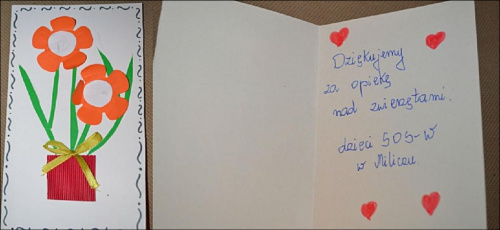 Dziękujemy
za opiekę
nad zwierzętami.
dzieci SOS-W
w Miliczu.